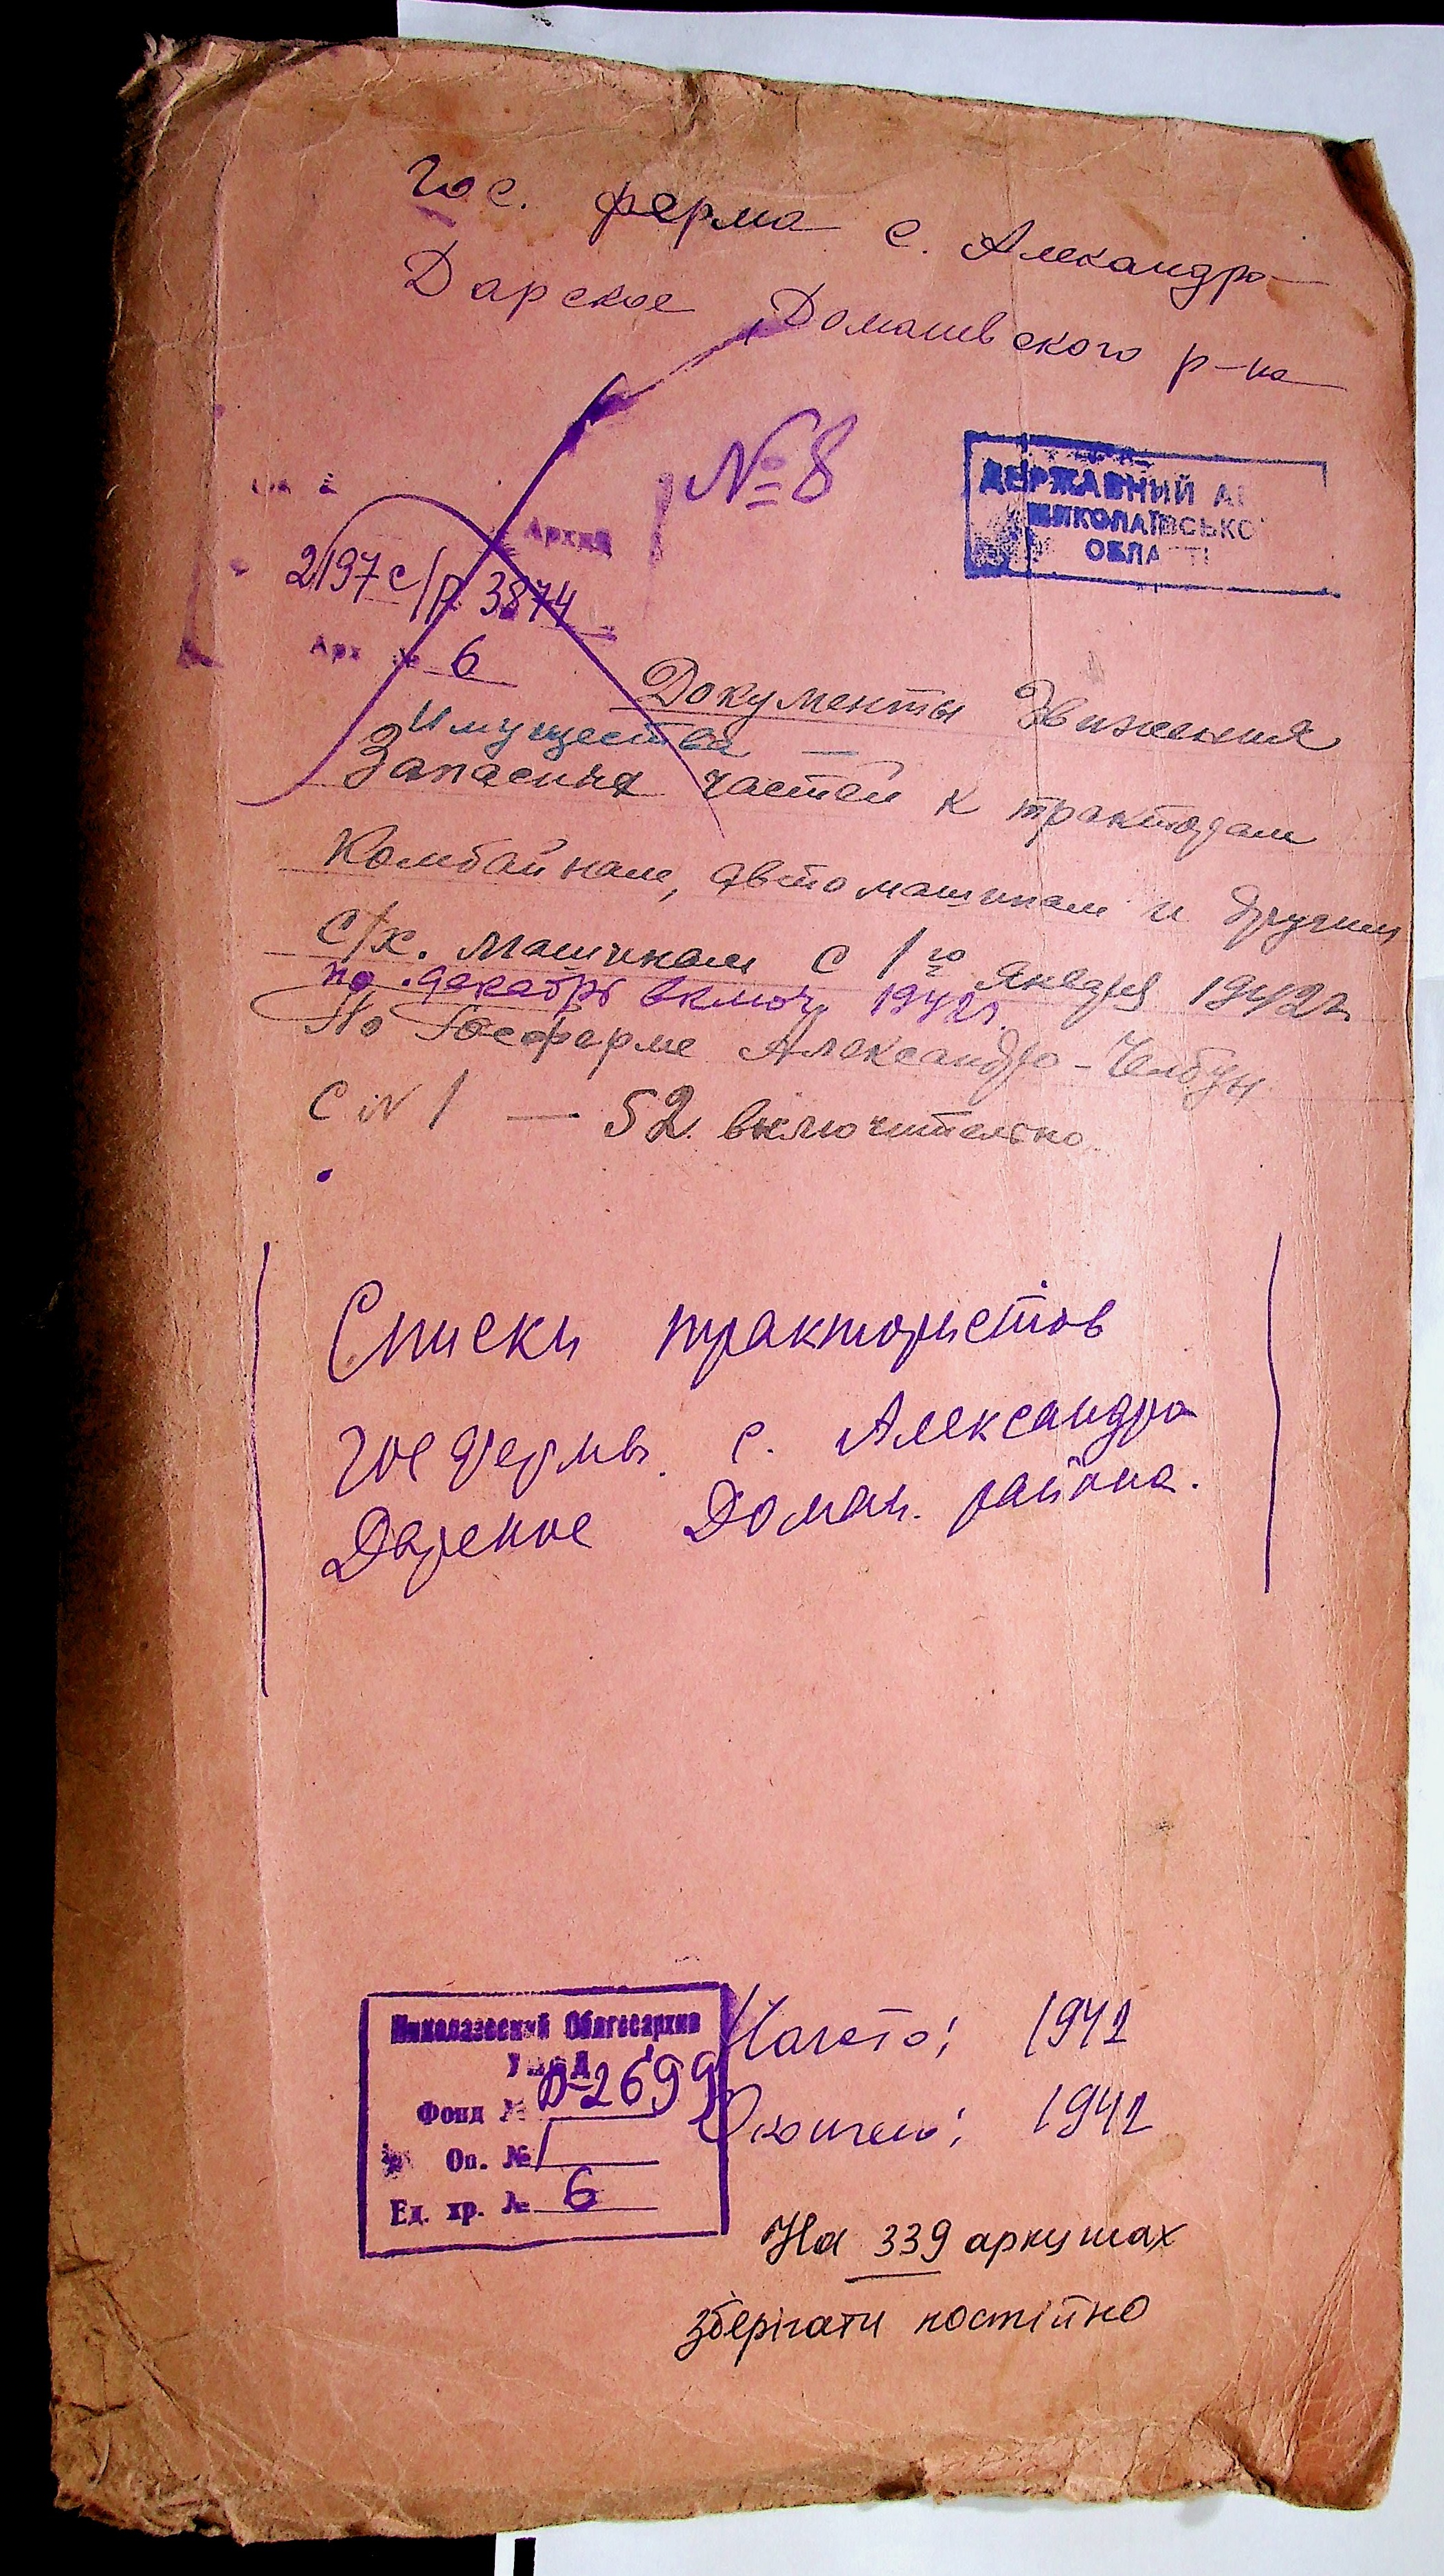 Гос. ферма с. Александро-
Дарское, Доманевского р-на
№ 8
ДЕРЖАВНИЙ АР
МИКОЛАЇВСЬКОЇ
ОБЛАСТІ
Архив
2197 с/р 3874
Арх № 6
Документы Движения
Имущества —
Запасных частей к тракторам
Комбайнам, автомашинам и другим
С/х. машинам с 1го Января 1942 г.
по декабрь включ. 1942 г.
По Госферме Александро-
С № 1 — 52 включительно.
Списки трактористов
госфермы с. Александро
Дарское Доман. района.
Николаевский Облгосархив
УМВД
Фонд № р-2699
Оп. № 1
Ед. хр. № 6
Начато: 1942
Окончено: 1942
На 339 аркушах
зберігати постійно